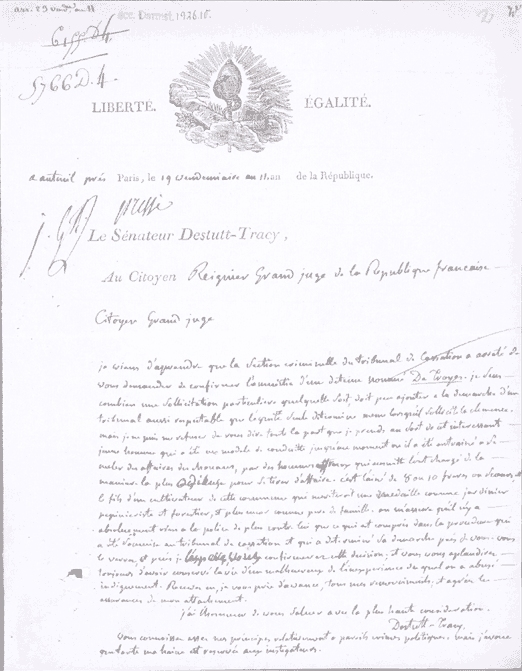 arr. 29 vend.re an 11
5766 D. 4.
LIBERTÉ. ÉGALITÉ.
a auteuil près Paris, le 19 vendemiaire an 11. an de la République.
pressé
Le Sénateur Destutt-Tracy,
Au Citoyen Reignier Grand juge de la Republique francaise
Citoyen Grand juge
je viens d'apprendre que la section criminelle du tribunal de Cassation a arreté de
vous demander de confirmer l'amnistie d'un detenu nommé De Troyes. je sens
combien une sollicitation particuliere quelquelle soit doit peu ajouter a la demarche d'un
tribunal aussi respectable que l'equité seule determine meme lorsquil sollicite la clemence.
mais je ne puis me refuser de vous dire toute la part que je prends au sort de cet interessant
jeune homme qui a été un modele de conduite jusqu'au moment ou il a été entrainé a se
meler des affaires des chouans, par des hommes qui ensuite l'ont chargé de la
maniere la plus pour se tirer d'affaire. c'est l'ainé de 8 ou 10 freres ou soeurs, et
le fils d'un cultivateur de cette commune qui meriteroit une medaille comme jardinier
pepinieriste et forestier, et plus encore comme pere de famille. on m'assure quil n'y a
absolument rien a la police de plus contre lui que ce qui est compris dans la procedure qui
a été soumise au tribunal de cassation et qui a determiné sa demarche près de vous. vous
le verrez, et puis je confirmerez cette decision, et vous vous aplaudirez
toujours d'avoir conservé la vie d'un malheureux de l'inexperience du quel on a abusé
indignement. Recevez en, je vous prie d'avance, tous mes remerciments, et agréez les
assurances de mon attachement.
j'ai l'honneur de vous saluer avec la plus haute consideration.
Destutt-Tracy.
vous connaissez assez mes principes relativement a pareils crimes politiques. mais j'avoue
que toute ma haine est reservée aux instigateurs.